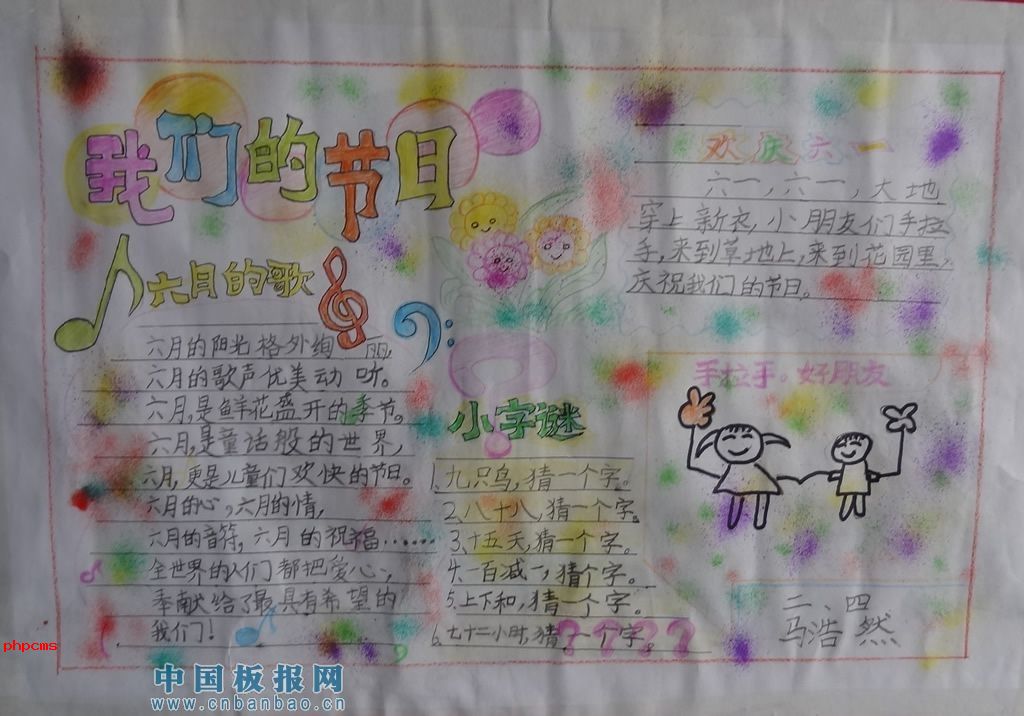 我们的节日
六月的歌
六月的阳光格外绚丽,
六月的歌声优美动听。
六月,是鲜花盛开的季节。
六月,是童话般的世界,
六月,更是儿童们欢快的节日。
六月的心,六月的情,
六月的音符,六月的祝福……
全世界的人们都把爱心,
奉献给了最具有希望的
我们!
小字谜
1.九只鸟,猜一个字。
2.八十八,猜一个字。
3.十五天,猜一个字。
4.一百减一,猜个字。
5.上下和,猜一个字。
6.七十二小时,猜一个字。
???
欢庆六一
六一,六一,大地
穿上新衣,小朋友们手拉
手,来到草地上,来到花园里,
庆祝我们的节日。
手拉手。好朋友
二、四
马浩然
phpcms
中国板报网
www.cnbanbao.cn